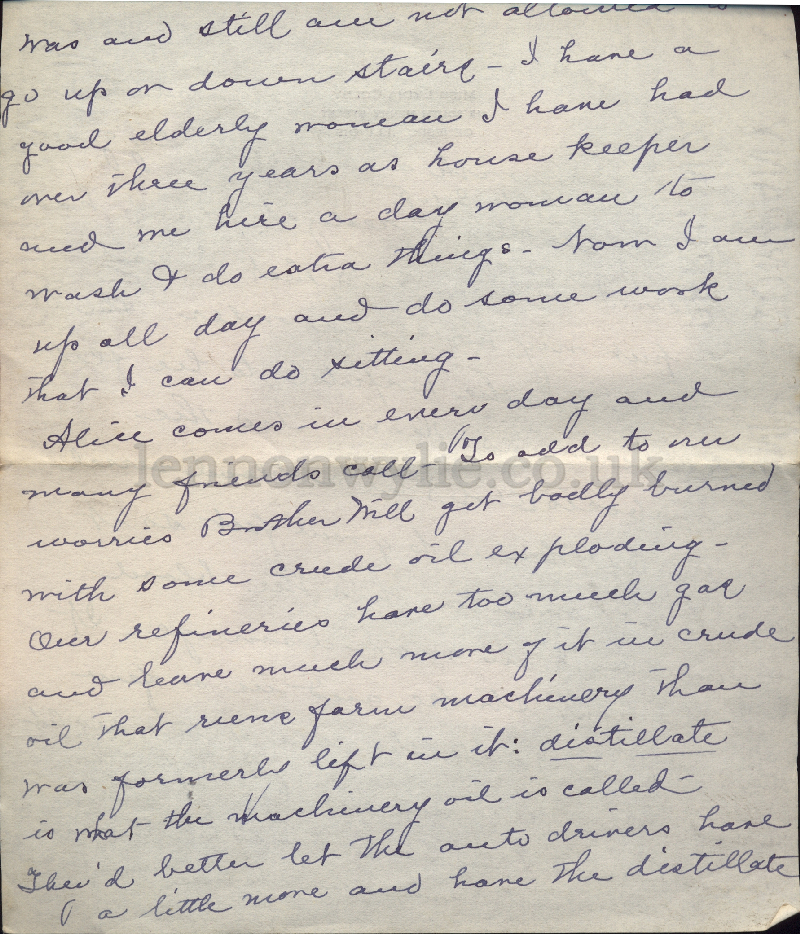 was and still am not allowed to
go up or down stairs - I have a
good elderly woman I have had
over three years as house keeper
and we hire a day woman to
wash & do extra things - Now I am
up all day and do some work
that I can do sitting -
Alice comes in every day and
many friends call - To add to our
lennonwylie.co.uk
worries Brother Will got badly burned
with some crude oil exploding -
Our refineries have too much gas
and leave much more of it in crude
oil that runs farm machinery than
was formerly left in it: distillate
is what the machinery oil is called -
They'd better let the auto drivers have
a little more and have the distillate